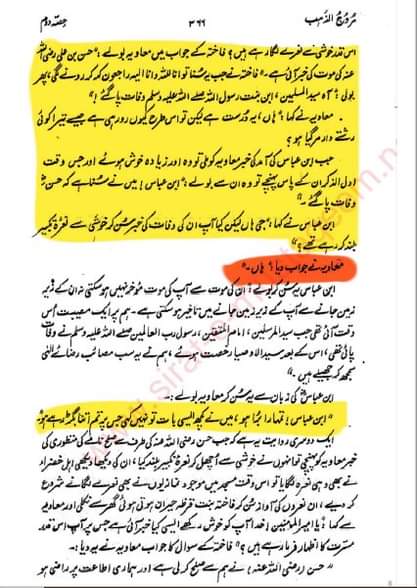 مروج الذہب ۳۶۶ حصّہ دوم
اس قدر خوشی سے نعرے لگا رہے ہیں؟ فاختہ کے جواب میں معاویہ بولے "حسن بن علی رضی اللہ
عنہ کی موت کی خبر آئی ہے۔" فاختہ نے جب یہ سُنا تو انا للہ وانا الیہ راجعون کہہ کر رونے لگی، پھر
بولی: آہ سید المسلمین، ابن بنت رسول اللہ صلے اللہ علیہ وسلم وفات پا گئے!"
معاویہ نے کہا: "ہاں، یہ درست ہے لیکن تو اس طرح کیوں رو رہی ہے جیسے تیرا کوئی
رشتے دار مر گیا ہو؟
جب ابن عباس کی آمد کی خبر معاویہ کو ملی تو وہ اور زیادہ خوش ہوئے اور جس وقت
اول الذکر ان کے پاس پہنچے تو وہ ان سے بولے: "ابن عباس! میں نے سُنا ہے کہ حسن رض
وفات پا گئے۔"
ابن عباس نے کہا: "جی ہاں لیکن کیا آپ ان کی وفات کی خبر سُن کر خوشی سے نعرۂ تکبیر
بلند کر رہے تھے؟"
معاویہ نے جواب دیا: "ہاں۔"
ابن عباس یہ سُن کر بولے: ان کی موت سے آپ کی موت مؤخر نہیں ہو سکتی نہ ان کے زیرِ
زمین جانے سے آپ کے زیر زمین جانے میں تاخیر ہو سکتی ہے۔ ہم پر ایک مصیبت اُس
وقت آئی تھی جب سید المرسلین، امام المتقین، رسول رب العالمین صلے اللہ علیہ وسلم نے وفات
پائی تھی، اس کے بعد سید الاوصیا رخصت ہوئے، ہم نے یہ سب مصائب رضائے الٰہی
سمجھ کر جھیلے ہیں۔"
ابن عباسؓ کی زبان سے یہ سُن کر معاویہ بولے:
"ابن عباس! تمہارا بُرا ہو، میں نے کچھ ایسی بات تو نہیں کہی جس پر تم اتنا بگڑ رہے ہو؟
ایک دوسری روایت یہ ہے کہ جب حسن رضی اللہ عنہ کی طرف سے صلح نامے کی منظوری کی
خبر معاویہ کو پہنچی تو انہوں نے خوشی سے اُچھل کر نعرۂ تکبیر بلند کیا، ان کی دیکھا دیکھی اہل خضراء
نے بھی وہی نعرہ لگایا تو اس وقت مسجد میں موجود نمازیوں نے بھی نعرے لگانے شروع
کر دیے، ان نعروں کی آواز سُن کر فاختہ بنت قرظہ حیران ہوتی ہوئی گھر سے نکلی اور معاویہ
سے کہا: "یا امیر المؤمنین! خدا آپ کو خوش رکھے ایسی کیا خبر آئی ہے جس پر آپ اس قدر
مسرت کا اظہار فرما رہے ہیں؟" فاختہ کے سوال کا جواب معاویہ نے یہ دیا:۔
"حسن (رضی اللہ عنہ) نے ہم سے صلح کر لی ہے اور ہماری اطاعت پر راضی ہو